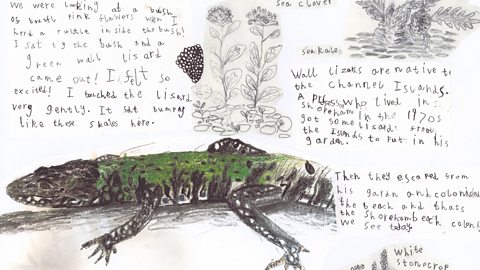 we were looking at a bush
of small pink flowers when I
herd a rustle in side the bush!
I sat by the bush and a
green wall lisard
came out! I felt so
excited! I touched the lisard
very gently. It felt bumpy
like these skales here.
sea clover
sea kale
Wall lizards are native to
the Channel Islands.
A person who lived in
shoreham in the 1970s
got some lisards from
the Islands to put in his
garden.
Then they escaped from
his gardn and colonised
the beach and thats
the shoreham beach colony
we see today
white
stonecrop